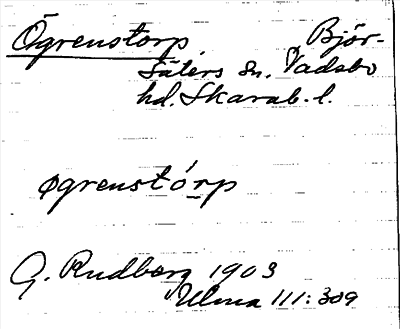 Ögrenstorp, Björ-
säters sn. Vadsbo
hd. Skarab. l.
øgrenstórp
G. Rudberg 1903
Ulma 111:309